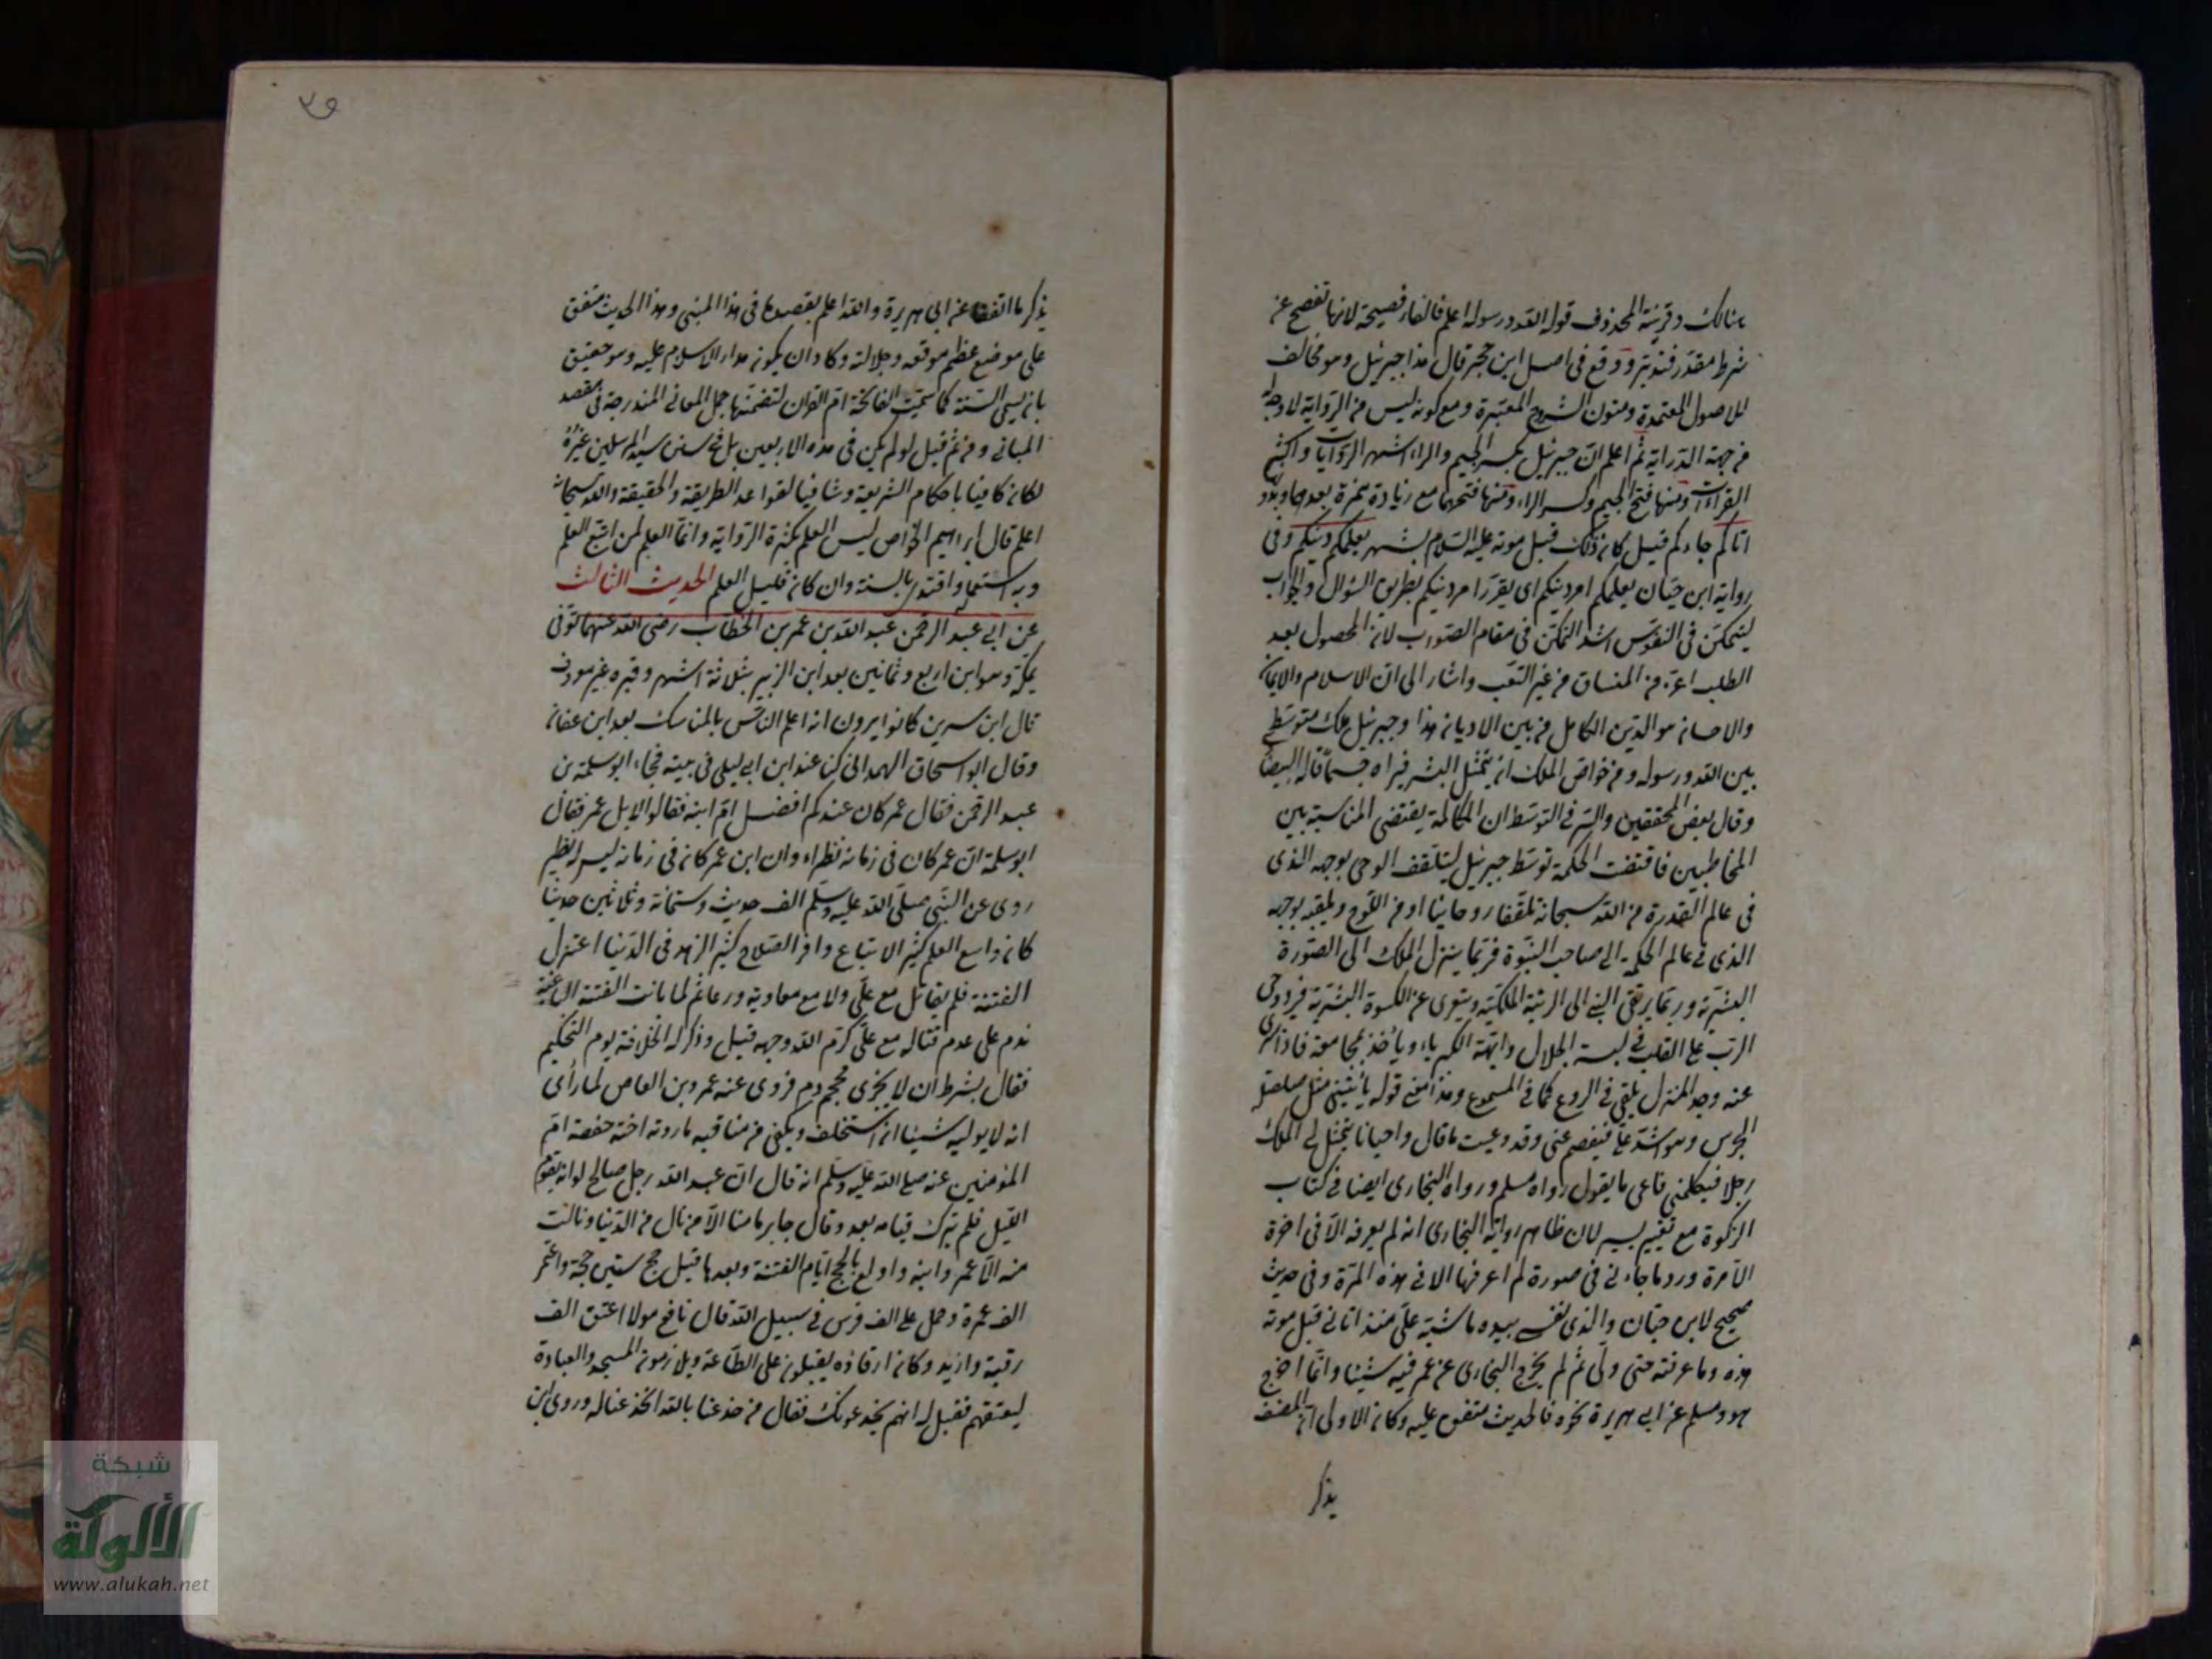 هنالك وقرينة المحذوف قوله الله ورسوله اعلم فالفاء فصيحة لانها تفصح عن
شرط مقدر فتدبر ووقع في اصل ابن حجر قال هذا جبرئيل وهو مخالف
للاصول المعتمدة ومتون الشروح المعتبرة ومع كونه ليس من الرواية لا وجه له
من جهة الدراية ثم اعلم ان جبرئيل بكسر الجيم والراء اشهر الروايات واكثر
القراءات ومنها فتح الجيم وكسر الراء ومنها فتحهما مع زيادة همزة بعدها
اتاكم جاءكم قيل كان ذلك قبل موته عليه السلام بشهر يعلمكم دينكم وفي
رواية ابن حبان يعلمكم امر دينكم اي يقرر امر دينكم بطريق السؤال والجواب
ليتمكن في النفوس اشد التمكن في مقام الصواب لان المحصول بعد
الطلب اعز من المنساق من غير التعب واشار الى ان الاسلام والايمان
والاحسان هو الدين الكامل من بين الاديان هذا وجبرئيل ملك متوسط
بين الله ورسوله ومن خواص الملك ان يتمثل للبشر فيراه جسما قاله البيضا
وقال بعض المحققين والسر في التوسط ان المكالمة يقتضي المناسبة بين
المخاطبين فاقتضت الحكمة توسط جبرئيل ليتلقف الوحي بوجهه الذي
في عالم القدرة من الله سبحانه تلقفا روحانيا او من اللوح ويلقيه بوجهه
الذي في عالم الحكمة الى صاحب النبوة فربما ينزل الملك الى الصورة
البشرية وربما يرتقي النبي الى الرتبة الملكية ويتعرى عن الكسوة البشرية فيرد وحي
الرب على القلب في لبسة الجلال وابهة الكبرياء ويأخذ بمجامعه فاذا سري
عنه وجد المنزل يلقى في الروع كما في المسموع وهذا معنى قوله يأتيني مثل صلصلة
الجرس وهو اشد علي فيفصم عني وقد وعيت ما قال واحيانا يتمثل لي الملك
رجلا فيكلمني فاعي ما يقول رواه مسلم ورواه البخاري ايضا في كتاب
الزكوة مع تغيير يسير لان ظاهر رواية البخاري انه لم يعرفه الا في اخرة
الامرة ورد ما جاءني في صورة لم اعرفها الا في هذه المرة وفي حديث
صحيح لابن حبان والذي نفسي بيده ما شبه علي منذ اتاني قبل موته
هذه وما عرفته حتى ولى ثم لم يخرج البخاري عن عمر فيه شيئا وانما اخرج
هو ومسلم عن ابي هريرة نحوه فالحديث متفق عليه وكان الاولى ان المصنف
يذكر
٣٥
يذكر ما اتفقا عن ابي هريرة والله اعلم بقصده في هذا المبنى وهذا الحديث متفق
على موضع عظم موقعه وجلالته وكاد ان يكون مدار الاسلام عليه وهو حقيق
بان يسمى السنة كما سميت الفاتحة ام القران لتضمنها جمل المعاني المندرجة في مقصد
المباني ومن ثم قيل لو لم يكن في هذه الاربعين بل في سنن سيد المرسلين غيره
لكان كافيا باحكام الشريعة وشافيا لقواعد الطريقة والحقيقة والله سبحانه
اعلم قال ابراهيم الخواص ليس العلم بكثرة الرواية وانما العلم لمن اتبع العلم
وبه استعمل واقتدى بالسنة وان كان قليل العلم الحديث الثالث
عن ابي عبد الرحمن عبد الله بن عمر بن الخطاب رضي الله عنهما توفي
بمكة وهو ابن اربع وثمانين بعد ابن الزبير بثلاثة اشهر وقبره غير معروف
قال ابن سيرين كانوا يرون انه اعلم الناس بالمناسك بعد ابن عفان
وقال ابو اسحاق الهمداني كنا عند ابن ابي ليلى في بيته فجاء ابو سلمة بن
عبد الرحمن فقال عمر كان عندكم افضل ام ابنه فقالوا لا بل عمر فقال
ابو سلمة ان عمر كان في زمانه نظراء وان ابن عمر كان في زمانه ليس له نظير
روي عن النبي صلى الله عليه وسلم الف حديث وستمائة وثلاثين حديثا
كان واسع العلم كثير الاتباع وافر الصلاح كثير الزهد في الدنيا اعتزل
الفتنة فلم يقاتل مع علي ولا مع معاوية لما بانت الفتنة الباغية
ندم على عدم قتاله مع علي كرم الله وجهه قيل وذكر له الخلافة يوم التحكيم
فقال بشرط ان لا يجرى محجم دم فزوى عنه عمرو بن العاص لما رأى
انه لا يوليه شيئا ان استخلف ويكفي من مناقبه ما روته اخته حفصة ام
المؤمنين عنه صلى الله عليه وسلم انه قال ان عبد الله رجل صالح لو انه يقوم
الليل فلم يترك قيامه بعد وقال جابر ما منا الا من نال من الدنيا ونالت
منه الا عمر وابنه واولع بالحج ايام الفتنة وبعدها قيل حج ستين حجة واعتمر
الف عمرة وحمل على الف فرس في سبيل الله قال نافع مولاه اعتق الف
رقبة وازيد وكان ارقاؤه يقبلون على الطاعة ويلازمون المسجد والعبادة
ليعتقهم فقيل له انهم يخدعونك فقال من خدعنا بالله انخدعنا له وروى ابن
شبكة
الألوكة
www.alukah.net